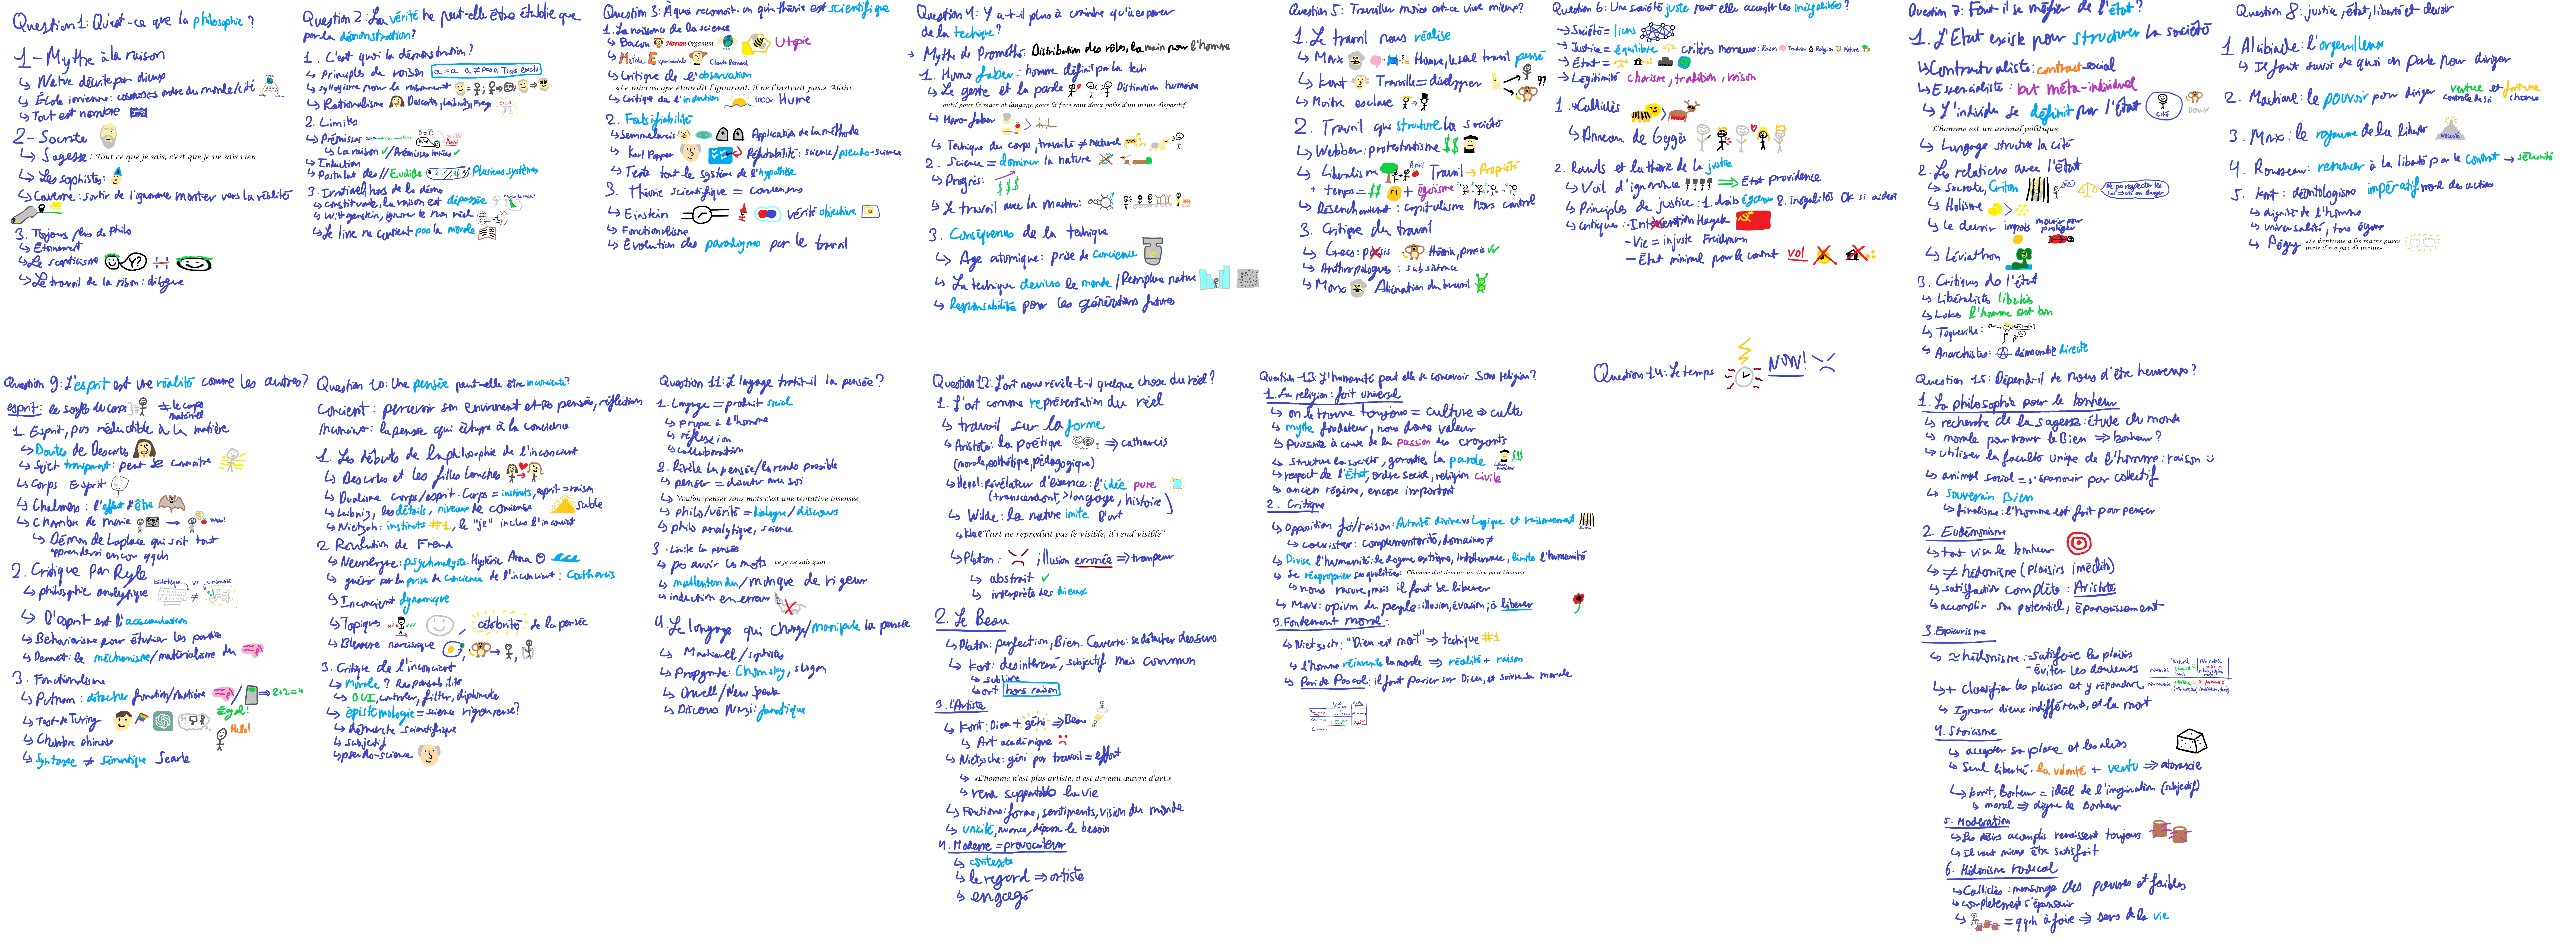 Question 1: Qu'est-ce que la philosophie ?
1 - Mythe à la raison
↳ Nature décrite par dieux
↳ École ionienne: cosmos ordre du monde/cité
↳ Tout est nombre
2 - Socrate
↳ Sagesse: Tout ce que je sais, c'est que je ne sais rien
↳ Les sophistes:
↳ Caverne: sortir de l'ignorance monter vers la réalité
3. Toujours plus de philo
↳ Étonnement
↳ Le scepticisme Y?
↳ Le travail de la raison: dialogue
Question 2: La vérité ne peut-elle être établie que
par la démonstration?
1. C'est quoi la démonstration?
↳ Principes de raison a=a a≠pas a Tiers exclu
↳ syllogisme pour le raisonnement
↳ Rationalisme Descartes, Leibniz, Frege
2. Limites
↳ Prémisses
↳ La raison // Prémisses innées
↳ Induction
↳ Postulat des // Euclide Plusieurs systèmes
3. Irrationnel hors de la démo
↳ constituante, la raison est dépassée
↳ Wittgenstein, ignorer le non réel
↳ Le livre ne contient pas la morale
Question 3: À quoi reconnait-on qu'une théorie est scientifique
1. La naissance de la science
↳ Bacon Novum Organum Utopie
↳ Méthode Expérimentale Claude Bernard
↳ Critique de l'observation
«Le microscope étourdit l'ignorant, il ne l'instruit pas.» Alain
↳ Critique de l'induction 1000x Hume
2. Falsifiabilité
↳ Semmelweis Application de la méthode
↳ Karl Popper Réfutabilité: science/pseudo-science
↳ Teste tout le système de l'hypothèse
3. Théorie scientifique = consensus
↳ Einstein vérité objective
↳ Fonctionnalisme
↳ Évolution des paradigmes par le travail
Question 4: Y a-t-il plus à craindre qu'à espérer
de la technique?
→ Mythe de Prométhée: Distribution des rôles, la main pour l'homme
1. Homo faber: homme définit par la tech
↳ Le geste et la parole Distinction humaine
outil pour la main et langage pour la face sont deux pôles d'un même dispositif
↳ Homo-faber >
↳ Technique du corps, travaillé ≠ naturel
2. Science = dominer la nature
↳ Progrès: $$$
↳ Le travail avec la machine:
3. Conséquences de la technique
↳ Age atomique: prise de conscience
↳ La technique deviens le monde/Remplace nature
↳ Responsabilité pour les générations futures
Question 5: Travailler moins est-ce vivre mieux?
1. Le travail nous réalise
↳ Marx Homme, le seul travail pensé
↳ Kant Travaille = développer ??
↳ Maitre esclave
2. Travail qui structure la société
↳ Webber: protestantisme $$
↳ Libéralisme Travail → Propriété
+ temps = $$ + égoïsme
↳ Désenchantement: capitalisme hors control
3. Critique du travail
↳ Grecs: poïesis théoria, praxis
↳ Anthropologues: subsistance
↳ Marx Aliénation du travail
Question 6: Une société juste peut elle accepter les inégalités?
→ Société = liens
→ Justice = équilibre critères moraux: Raison Tradition Religion Nature
→ État =
→ Légitimité charisme, tradition, raison
1. Calliclès
↳ Anneau de Gygès
2. Rawls et la théorie de la justice
↳ Voil d'ignorance ⇒ État providence
↳ Principes de justice: 1. droits égaux 2. inégalités OK si aident
↳ Critiques: - Intervention Hayek
- Vie = injuste Friedman
- État minimal pour le contrat vol
Question 7: Faut il se méfier de l'état?
1. L'État existe pour structurer la société
↳ Contractualiste: contract-social
↳ Essencialiste: but méta-individuel
↳ L'individu se définit par l'État cité
L'homme est un animal politique
↳ Langage structure la cité
2. Les relations avec l'État
↳ Socrate, Criton
↳ Holisme >
↳ Le devoir impots mourir pour protéger
↳ Léviathan
3. Critiques de l'état
↳ Libéralistes libertés
↳ Loke l'homme est bon
↳ Toqueville:
↳ Anarchistes: démocratie directe
Question 8: justice, état, liberté et devoir
1. Alcibiade: l'orgueilleux
↳ Il faut savoir de quoi on parle pour diriger
2. Machiavel: le pouvoir pour diriger vertue contrôle de soi et fortune chance
3. Marx: le royaume de la liberté
4. Rousseau: renoncer à la liberté par le contrat → sécurité
5. Kant: déontologisme impératif moral des actions
↳ dignité de l'homme
↳ universalité, tous égaux
↳ Péguy «Le kantisme a les mains pures mais il n'a pas de mains»
Question 9: L'esprit est une réalité comme les autres?
esprit: le souffle du corps ≠ le corps matériel
1. Esprit, pas réductible à la matière
↳ Doutes de Descartes
↳ Sujet transparent: peut se connaitre
↳ Corps Esprit
↳ Chalmers: l'effet d'être
↳ Chambre de marie → wow!
↳ Démon de Laplace qui sait tout
apprendrai encore qqch
2. Critique Par Ryle
↳ philosophie analytique bibliothèque vs université ≠
↳ L'Esprit est l'accumulation
↳ Behaviorisme pour étudier les parties
↳ Dennet: le méchanisme/matérialisme du
3. Fonctionalisme
↳ Putnam: détacher fonction/matière / ⇒ 2+2=4
↳ Test de Turing Égal!
↳ Chambre chinoise Hello!
↳ Syntaxe ≠ Sémantique Searle
Question 10: Une pensée peut-elle être inconsciente?
Conscient: percevoir son environnement et ses pensées, réflection
Inconscient: la pensée qui échappe à la conscience
1. Les débuts de la philosophie de l'inconscient
↳ Descartes et les filles louches
↳ Dualisme corps/esprit. Corps = instincts, esprit = raison
↳ Leibniz, les détails, niveaux de conscience sable
↳ Nietzsche: instincts #1, le "je" inclus l'inconscient
2 Révolution de Freud
↳ Neurologue: psychanalyse. Hystérie Anna O
↳ guérir par la prise de conscience de l'inconscient: Catharsis
↳ Inconscient dynamique
↳ Topiques célébrité de la pensée
↳ Blessure narcissique
3. Critique de l'inconscient
↳ Morale? Responsabilité
↳ OUI, controler, filtrer, diplomate
↳ épistémologie = science rigoureuse?
↳ démarche scientifique
↳ subjectif
↳ pseudo-science
Question 11: Le langage trahit-il la pensée?
1. Langage = produit social
↳ propre à l'homme
↳ réflexion
↳ collaboration
2. Révèle la pensée/la rendre possible
↳ penser = discuter avec soi
↳ Vouloir penser sans mots c'est une tentative insensée
↳ philo/vérité = dialogue/discours
↳ philo analytique, science
3. Limite la pensée
↳ pas avoir les mots ce je ne sais quoi
↳ malentendu/manque de rigeur
↳ induction en erreur
4. Le langage qui change/manipule la pensée
↳ Machiavell/sophistes
↳ Propagande: Chomsky, slogan
↳ Orwell/New Speak
↳ Discours Nazi: fanatique
Question 12: L'art nous révèle-t-il quelque chose du réel?
1. L'art comme représentation du réel
↳ travail sur la forme
↳ Aristote: la poétique ⇒ catharcis
(morale, esthétique, pédagogique)
↳ Hegel: Révélateur d'essence: l'idée pure
(transcendant, > langage, histoire)
↳ Wilde: la nature imite l'art
↳ Klee "l'art ne reproduit pas le visible, il rend visible"
↳ Platon: illusion erronée ⇒ trompeur
↳ abstrait
↳ interprète des dieux
2. Le Beau
↳ Platon: perfection, Bien. Caverne: se détacher des sens
↳ Kant: desinteressé, subjectif mais commun
↳ sublime
↳ art hors raison
3. L'Artiste
↳ Kant: Dieu + géni ⇒ Beau
↳ Art académique
↳ Nietzsche: géni par travail = effort
↳ «L'homme n'est plus artiste, il est devenu œuvre d'art.»
↳ rend supportable la vie
↳ Fonctions: forme, sentiments, vision du monde
↳ unicité, nuance, dépasse le besoin
4. Moderne = provocateur
↳ contexte
↳ le regard ⇒ artiste
↳ engagé
Question 13: L'humanité peut elle se concevoir sans religion?
1. La religion: fait universel
↳ on le trouve toujours = culture ⇒ culte
↳ mythe fondateur, nous donne valeur
↳ puissante à cause de la passion des croyants
↳ structure la société, garantie la parole $$$
↳ respect de l'État, ordre social, religion civile
↳ ancien régime, encore important
2. Critique
↳ opposition foi/raison: Autorité divine vs Logique et raisonnement
↳ coexister: complémentarité, domaines ≠
↳ Divise l'humanité: le dogme extrême, intolérance, limite l'humanité
↳ Se réaproprier ses qualités: l'homme doit devenir un dieu pour l'homme
↳ nous rassure, mais il faut se libérer
↳ Marx: opium du peuple: illusion, évasion, à libérer
3. Fondement moral:
↳ Nietzsche: "Dieu est mort" ⇒ téchnique #1
↳ l'homme réinvente la morale ⇒ réalité + raison
↳ Pari de Pascal: il faut parier sur Dieu, et suivre sa morale
Question 14: Le temps NOW!
Question 15: Dépend-il de nous d'être heureux?
1. La philosophie pour le bonheur
↳ recherche de la sagesse: étude du monde
↳ morale pour trouver le Bien ⇒ bonheur?
↳ utiliser la faculté unique de l'homme: raison
↳ animal social = s'épanouir par collectif
↳ souverain Bien
↳ finalisme: l'homme est fait pour penser
2. Eudémonisme
↳ tout vise le bonheur
↳ ≠ hédonisme (plaisirs imédits)
↳ satisfaction complète: Aristote
↳ accomplir son potentiel, épanouissement
3. Epicurisme
↳ ≈ hédonisme: - satisfaire les plaisirs
- éviter les douleurs
↳ + classifier les plaisirs et y répondre
↳ Ignorer dieux indifférents, et la mort
4. Stoïcisme
↳ accepter sa place et les aléas
↳ Seul liberté: la volonté + vertu ⇒ ataraxie
↳ Kant, Bonheur = idéal de l'imagination (subjectif)
↳ moral ⇒ digne de Bonheur
5. Modération
↳ Les désirs acomplis renaissent toujours
↳ Il vaut mieux être satisfait
6. Hédonisme radical
↳ Calliclès: mensonge des pauvres et faibles
↳ complètement s'épanouir
↳ = qqch à faire ⇒ sens de la vie